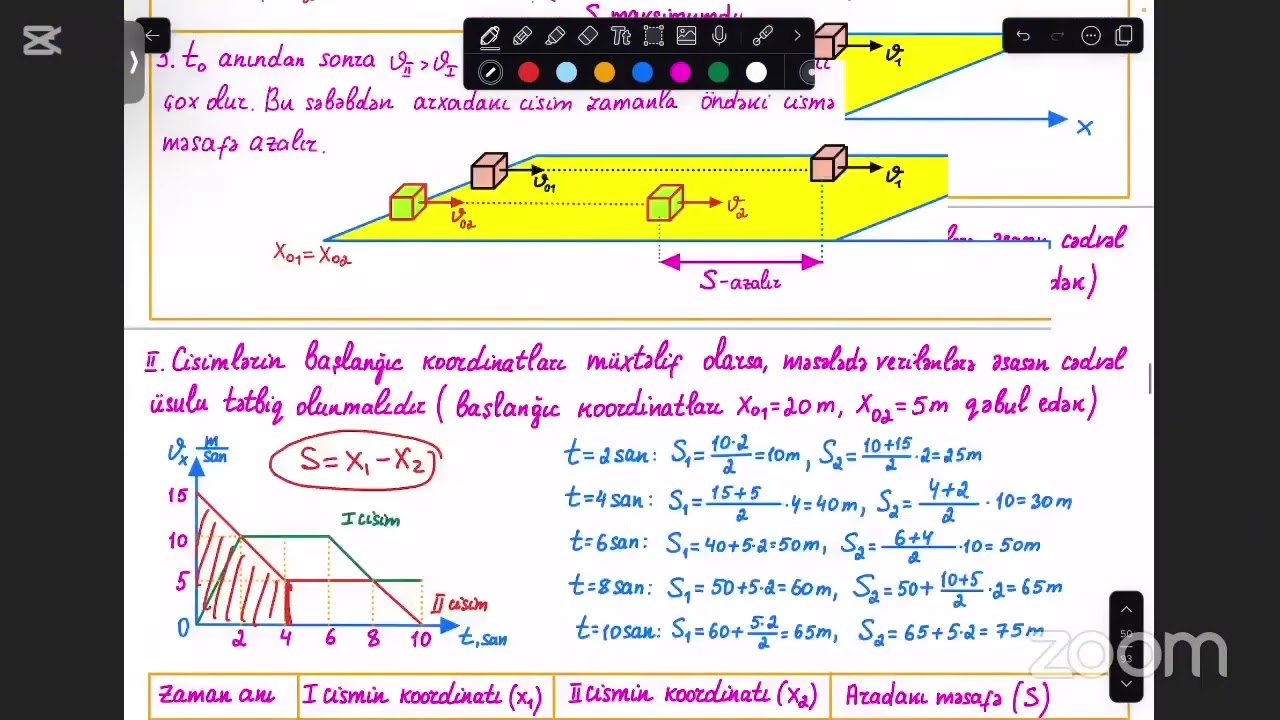 S maksimumdu
3. t₀ anından sonra ϑ_II > ϑ_I
çox dur. Bu səbəbdən arxadakı cisim zamanla öndəki cismə
məsafə azalır.
ϑ₁
x
ϑ₀₁
ϑ₁
ϑ₀₂
ϑ₂
X₀₁ = X₀₂
S-azalır
cədvəl
dək)
II. Cisimlərin başlanğıc koordinatları müxtəlif olarsa, məsələdə verilənlərə əsasən cədvəl
üsulu tətbiq olunmalıdır ( başlanğıc koordinatları X₀₁=20m, X₀₂=5m qəbul edək)
ϑₓ m/san
S = X₁ - X₂
15
10
5
0
2 4 6 8 10
t, san
I cisim
II cisim
t=2san: S₁= 10·2/2 =10m, S₂= 10+15/2 ·2=25m
t=4san: S₁= 15+5/2 ·4=40m, S₂= 4+2/2 ·10=30m
t=6san: S₁=40+5·2=50m, S₂= 6+4/2 ·10=50m
t=8san: S₁=50+5·2=60m, S₂=50+ 10+5/2 ·2=65m
t=10san: S₁=60+ 5·2/2 =65m, S₂=65+5·2=75m
Zaman anı I cismin koordinatı (x₁) II cismin koordinatı (x₂) Aradakı məsafə (S)
Tt
50
93
zoom